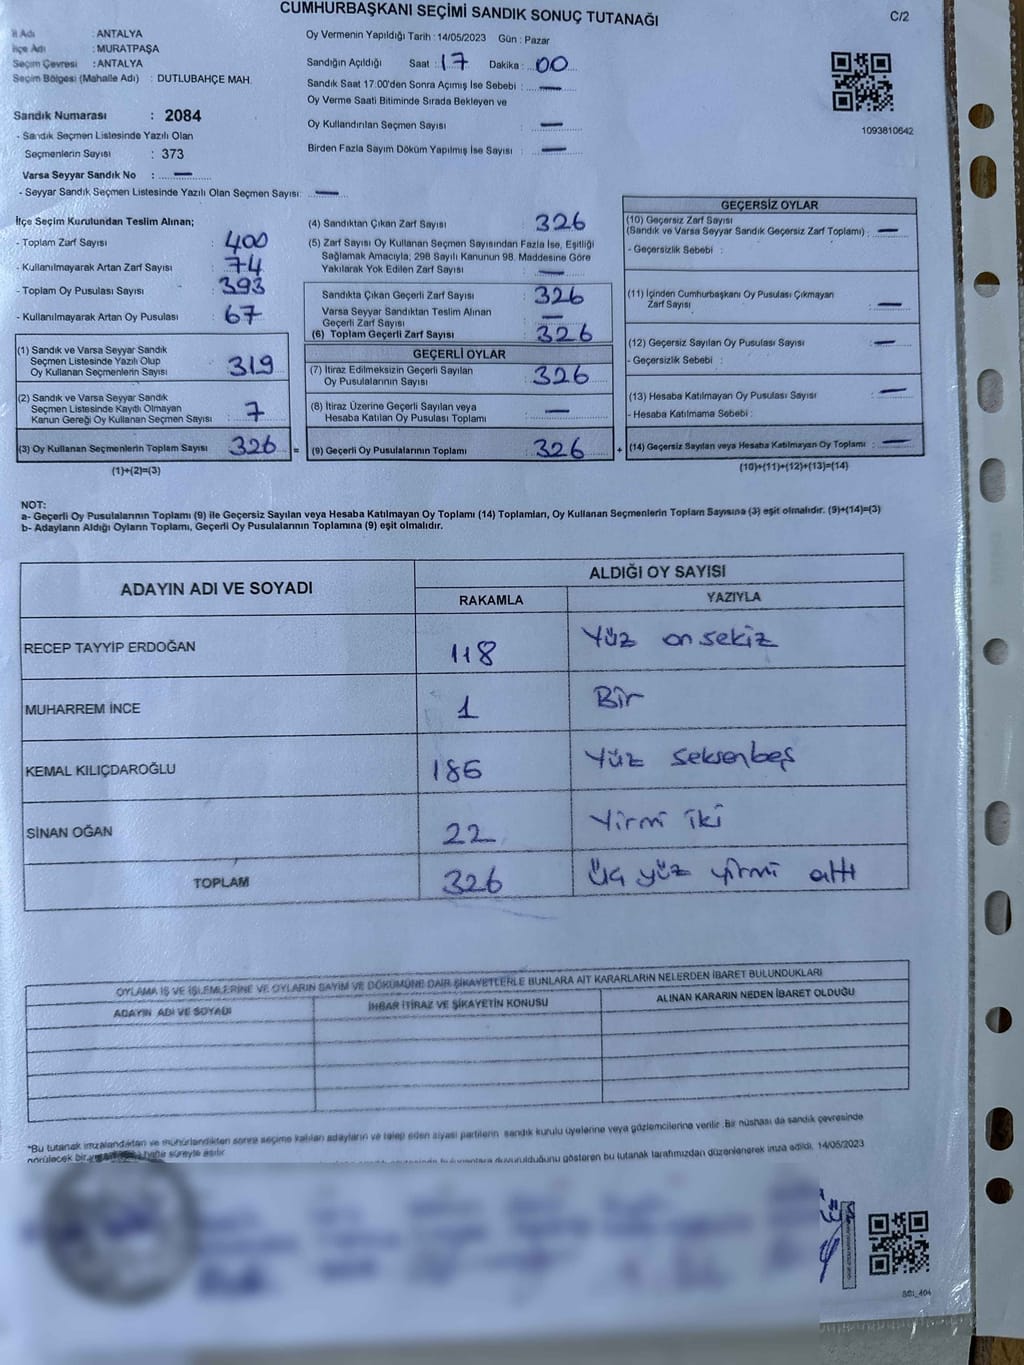 CUMHURBAŞKANI SEÇİMİ SANDIK SONUÇ TUTANAĞI
C/2
İl Adı : ANTALYA
İlçe Adı : MURATPAŞA
Seçim Çevresi : ANTALYA
Seçim Bölgesi (Mahalle Adı) : DUTLUBAHÇE MAH.
Sandık Numarası : 2084
- Sandık Seçmen Listesinde Yazılı Olan
Seçmenlerin Sayısı : 373
Varsa Seyyar Sandık No : —
- Seyyar Sandık Seçmen Listesinde Yazılı Olan Seçmen Sayısı: —
Oy Vermenin Yapıldığı Tarih : 14/05/2023 Gün : Pazar
Sandığın Açıldığı Saat : 17 Dakika : 00
Sandık Saat 17:00'den Sonra Açımış İse Sebebi : —
Oy Verme Saati Bitiminde Sırada Bekleyen ve
Oy Kullandırılan Seçmen Sayısı : —
Birden Fazla Sayım Döküm Yapılmış İse Sayısı : —
1093810642
İlçe Seçim Kurulundan Teslim Alınan;
- Toplam Zarf Sayısı : 400
- Kullanılmayarak Artan Zarf Sayısı : 74
- Toplam Oy Pusulası Sayısı : 393
- Kullanılmayarak Artan Oy Pusulası : 67
(1) Sandık ve Varsa Seyyar Sandık
Seçmen Listesinde Yazılı Olup
Oy Kullanan Seçmenlerin Sayısı : 319
(2) Sandık ve Varsa Seyyar Sandık
Seçmen Listesinde Kayıtlı Olmayan
Kanun Gereği Oy Kullanan Seçmen Sayısı : 7
(3) Oy Kullanan Seçmenlerin Toplam Sayısı : 326 =
(1)+(2)=(3)
(4) Sandıktan Çıkan Zarf Sayısı : 326
(5) Zarf Sayısı Oy Kullanan Seçmen Sayısından Fazla İse, Eşitliği
Sağlamak Amacıyla, 298 Sayılı Kanunun 98. Maddesine Göre
Yakılarak Yok Edilen Zarf Sayısı : —
Sandıkta Çıkan Geçerli Zarf Sayısı : 326
Varsa Seyyar Sandıktan Teslim Alınan
Geçerli Zarf Sayısı : —
(6) Toplam Geçerli Zarf Sayısı : 326
GEÇERLİ OYLAR
(7) İtiraz Edilmeksizin Geçerli Sayılan
Oy Pusulalarının Sayısı : 326
(8) İtiraz Üzerine Geçerli Sayılan veya
Hesaba Katılan Oy Pusulası Toplamı : —
(9) Geçerli Oy Pusulalarının Toplamı : 326 +
GEÇERSİZ OYLAR
(10) Geçersiz Zarf Sayısı
(Sandık ve Varsa Seyyar Sandık Geçersiz Zarf Toplamı) : —
- Geçersizlik Sebebi :
(11) İçinden Cumhurbaşkanı Oy Pusulası Çıkmayan
Zarf Sayısı : —
(12) Geçersiz Sayılan Oy Pusulası Sayısı : —
- Geçersizlik Sebebi :
(13) Hesaba Katılmayan Oy Pusulası Sayısı : —
- Hesaba Katılmama Sebebi :
(14) Geçersiz Sayılan veya Hesaba Katılmayan Oy Toplamı : —
(10)+(11)+(12)+(13)=(14)
NOT:
a- Geçerli Oy Pusulalarının Toplamı (9) ile Geçersiz Sayılan veya Hesaba Katılmayan Oy Toplamı (14) Toplamları, Oy Kullanan Seçmenlerin Toplam Sayısına (3) eşit olmalıdır. (9)+(14)=(3)
b- Adayların Aldığı Oyların Toplamı, Geçerli Oy Pusulalarının Toplamına (9) eşit olmalıdır.
ADAYIN ADI VE SOYADI
ALDIĞI OY SAYISI
RAKAMLA YAZIYLA
RECEP TAYYİP ERDOĞAN 118 Yüz onsekiz
MUHARREM İNCE 1 Bir
KEMAL KILIÇDAROĞLU 185 Yüz seksenbeş
SİNAN OĞAN 22 Yirmi iki
TOPLAM 326 Üç yüz yirmi altı
OYLAMA İŞ VE İŞLEMLERİNE VE OYLARIN SAYIM VE DÖKÜMÜNE DAİR ŞİKAYETLERLE BUNLARA AİT KARARLARIN NELERDEN İBARET BULUNDUKLARI
ADAYIN ADI VE SOYADI İHBAR İTİRAZ VE ŞİKAYETİN KONUSU ALINAN KARARIN NEDEN İBARET OLDUĞU
*Bu tutanak imzalandıktan ve mühürlendikten sonra seçime katılan adayların ve talep eden siyasi partilerin sandık kurulu üyelerine veya gözlemcilerine verilir. Bir nüshası da sandık çevresinde
görülecek bir hafta süreyle asılır.
duyurulduğunu gösteren bu tutanak tarafımızdan düzenlenerek imza edildi. 14/05/2023